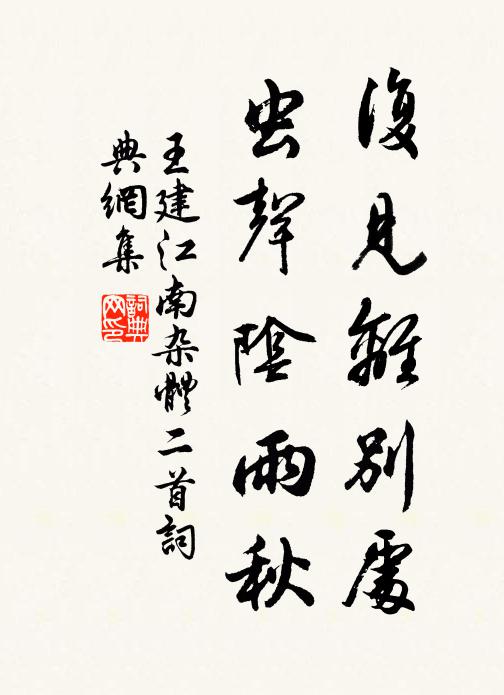 復見離別處
虫聲陰雨秋
王建江南杂體二首詞
典網集
詞典网印